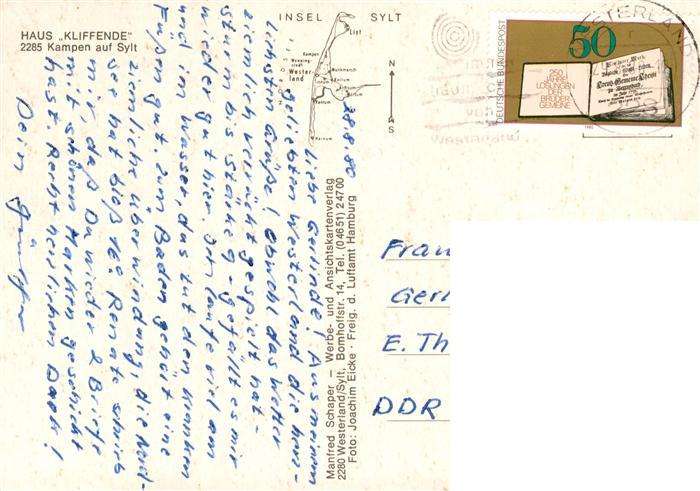 HAUS „KLIFFENDE"
2285 Kampen auf Sylt
INSEL SYLT
List
Kampen
Wester-
land
Keitum
N
S
28.8.80
Liebe Gerlinde! Aus meinem
geliebten Westerland die herz-
lichsten Grüße! Obwohl das Wetter
ziemlich verrückt gespielt hat -
Sturm bis Stärke 9 - gefällt es mir
wieder gut hier. Ich laufe viel am
und Wasser, das tut den kranken
Füßen gut. Zum Baden gehört eine
ziemliche Überwindung, die Nord-
see hat bloß 16°. Renate schrieb
mir, daß Du wieder 2 Briefe
mit schönen Marken geschickt
hast. Recht herzlichen Dank!
Dein
Manfred Schaper – Werbe- und Ansichtskartenverlag
2280 Westerland/Sylt, Bomhoffstr. 14, Tel. (04651) 24700
Foto: Joachim Eicke · Freig. d. Luftamt Hamburg
DEUTSCHE BUNDESPOST
50
250
JAHRE
LOSUNGEN
DER
BRÜDER-
GEMEINE
1980
WESTERLAND
Frau
Gerl
E. Th
DDR